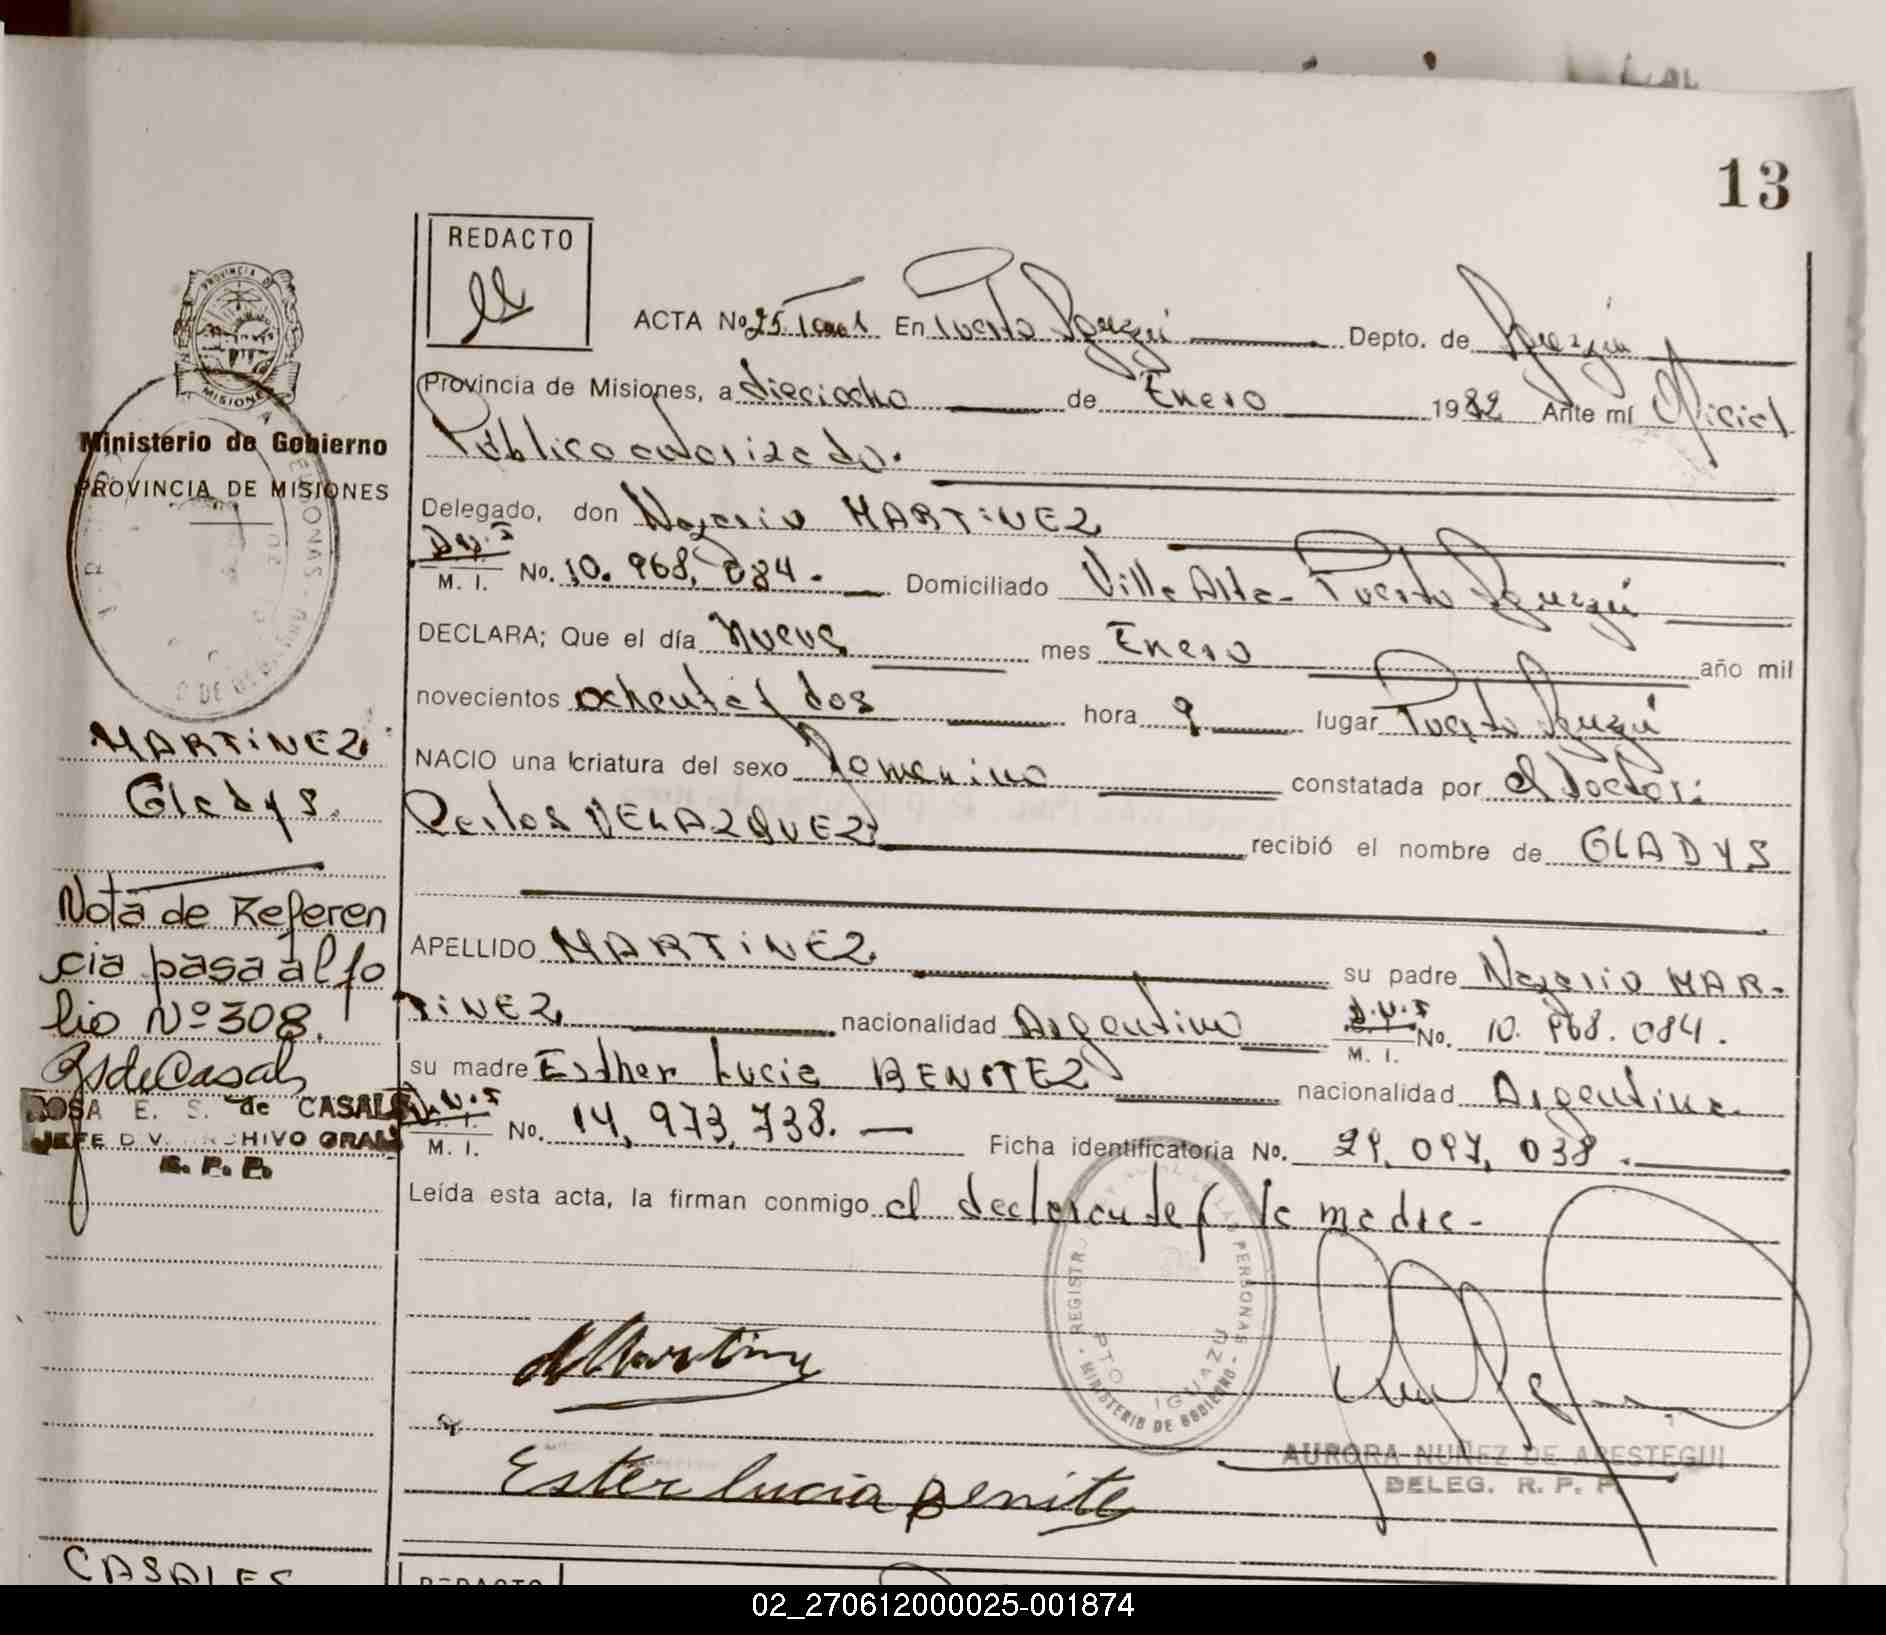 13
REDACTO
ACTA No 25 Tomo 1 En Puerto Iguazú Depto. de Iguazú
Provincia de Misiones, a dieciocho de Enero 1982 Ante mí Oficial
Público autorizado.
Delegado, don Nazario MARTINEZ
D.N.I
M. I. No. 10. 968. 084. Domiciliado Villa Alta - Puerto Iguazú
DECLARA; Que el día nueve mes Enero año mil
novecientos ochenta y dos hora 9 lugar Puerto Iguazú
NACIO una criatura del sexo Femenino constatada por el Doctor:
Carlos VELAZQUEZ recibió el nombre de GLADYS
APELLIDO MARTINEZ su padre Nazario MAR-
TINEZ nacionalidad Argentino D.N.I M. I. No. 10. 968. 084.
su madre Esther Lucia BENITEZ nacionalidad Argentina
D.N.I M. I. No. 14, 973, 738. Ficha identificatoria No. 29, 097, 038.
Leída esta acta, la firman conmigo el declarante y la madre -
Ester lucia Benite
AURORA NUÑEZ DE ARESTEGUI
DELEG. R. P. P.
REGISTR PERSONAS
PTO IGUAZU
MINISTERIO DE GOBIERNO
PROVINCIA DE
MISIONES
Ministerio de Gobierno
PROVINCIA DE MISIONES
MARTINEZ
Gladys.
Nota de Referen
cia pasa al fo
lio Nº 308.
RSdeCasals
ROSA E. S. de CASALS
JEFE DIV. ARCHIVO GRAL
R. P. P.
CASALES
REDACTO
02_270612000025-001874